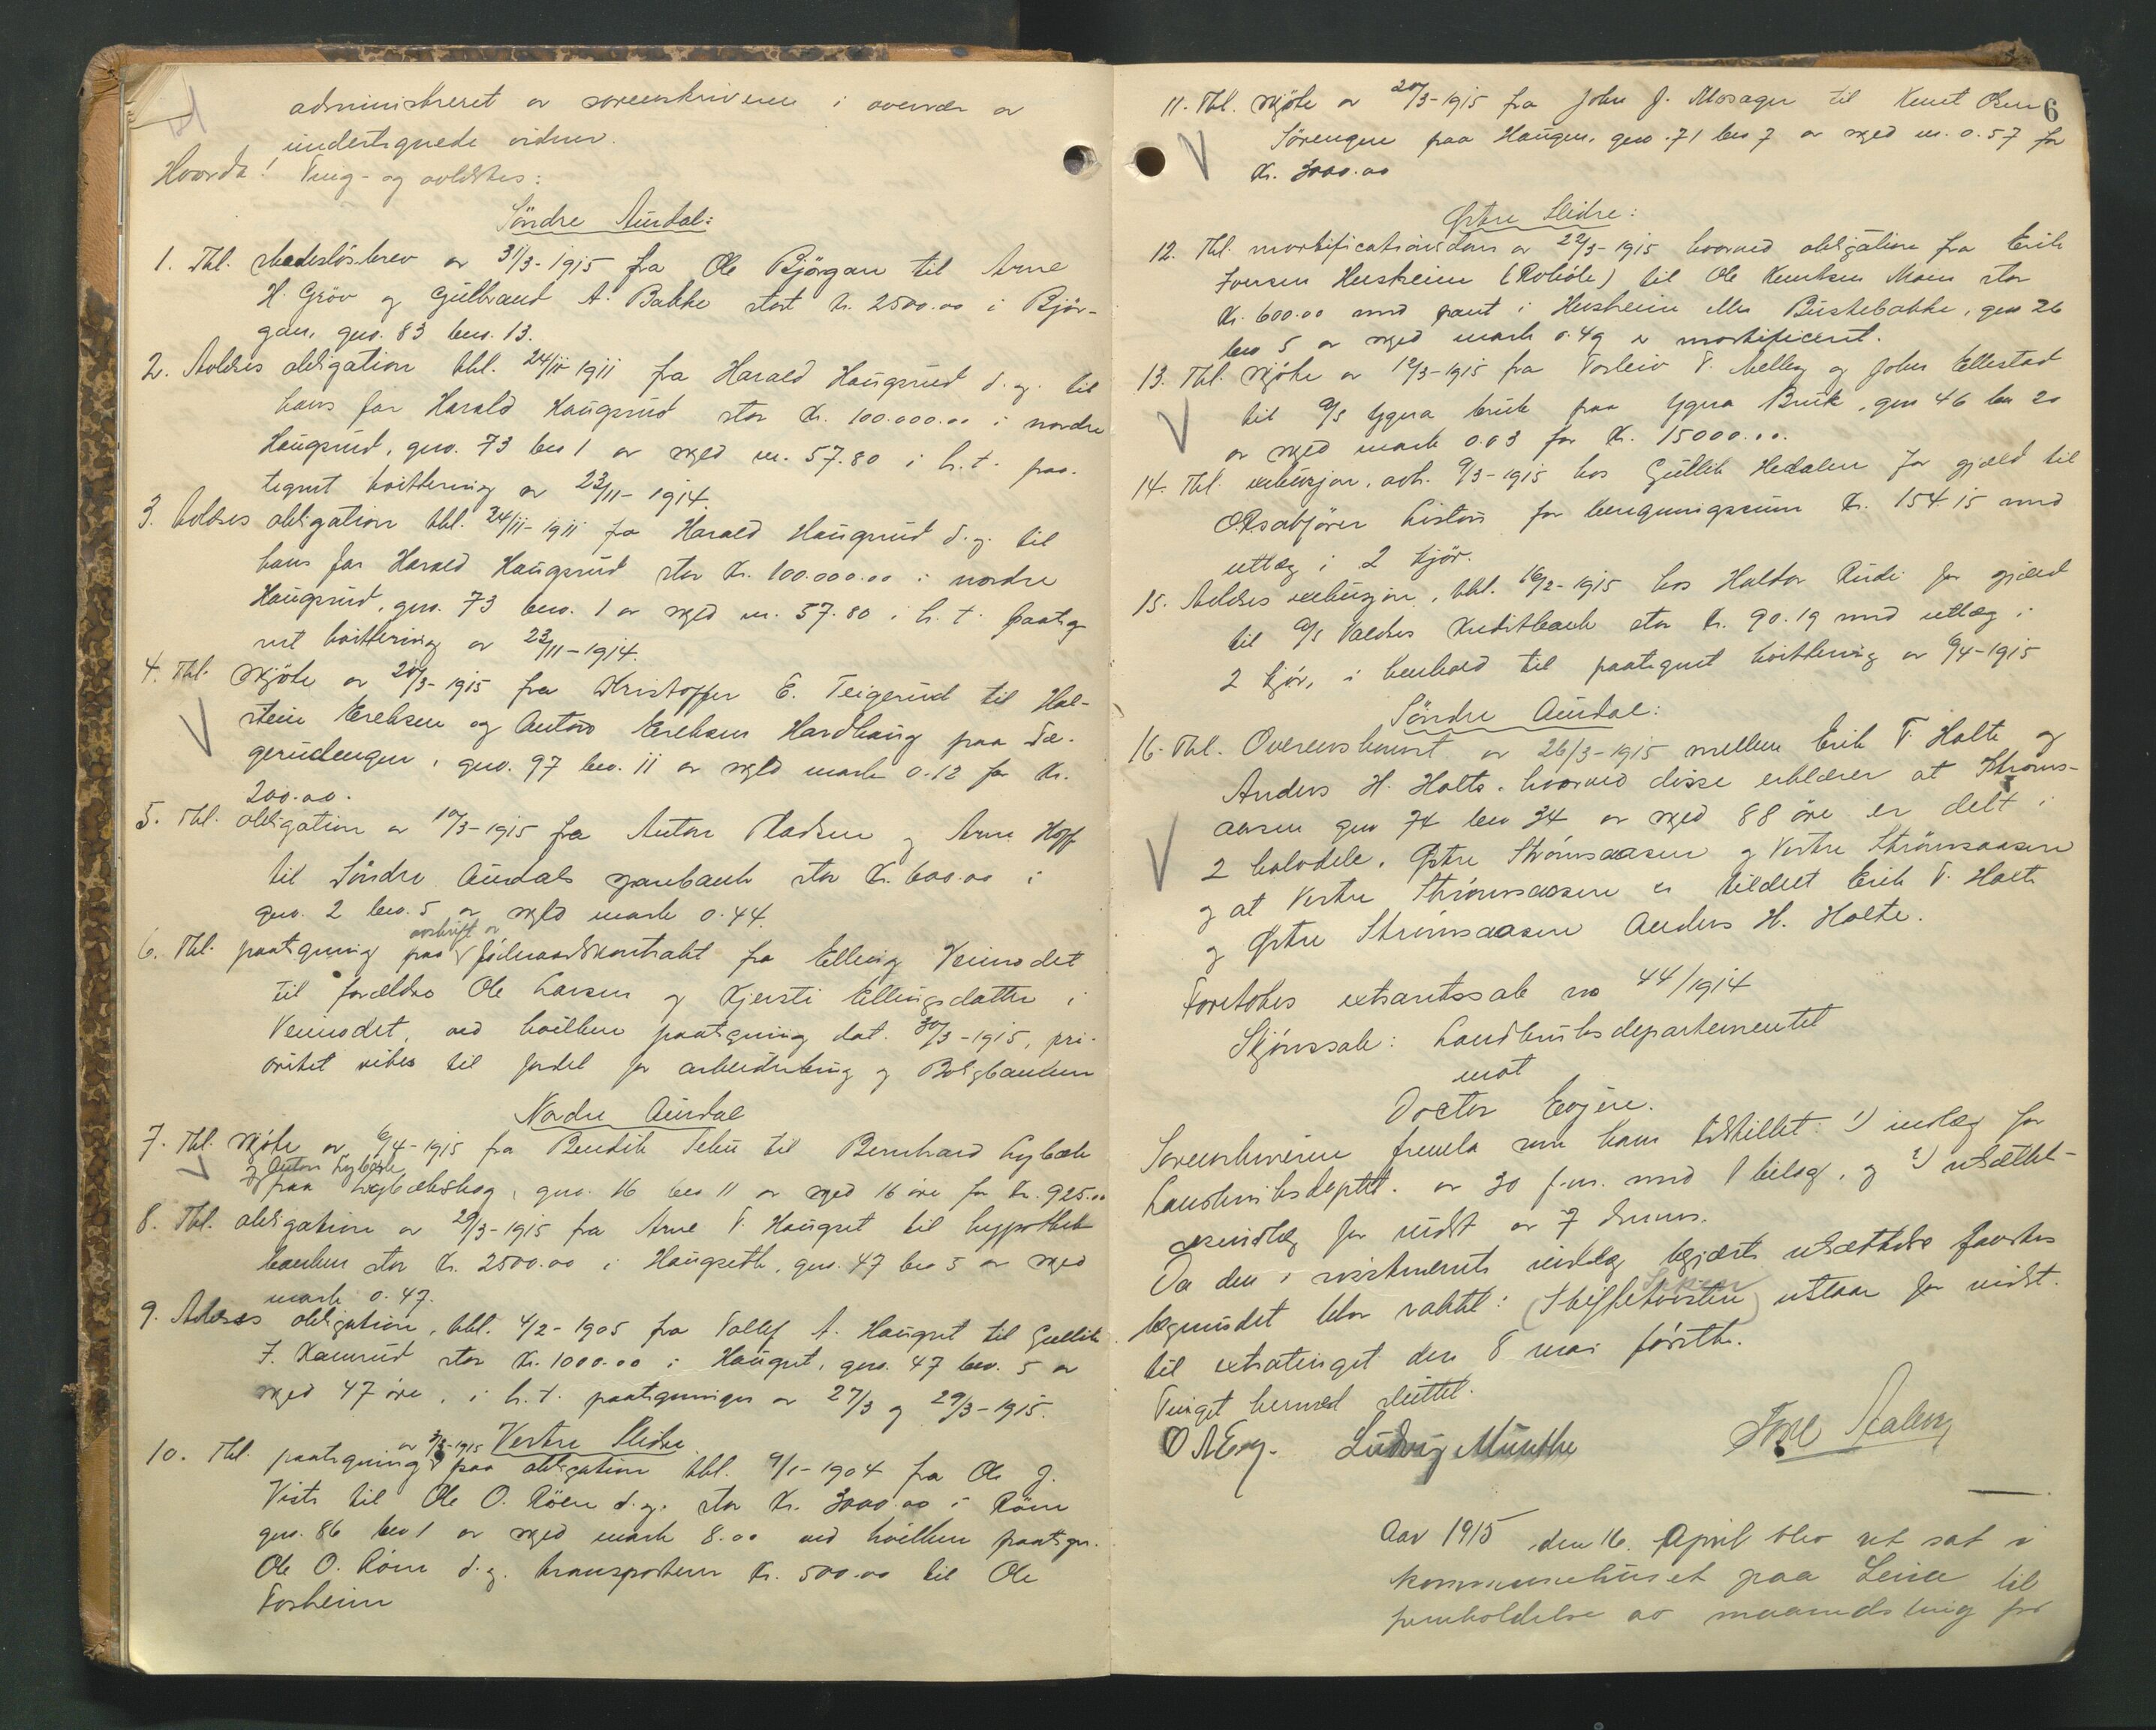 administreret av sorenskriveren i overvær av
undertegnede vidner.
Hvorda! Ting- og avlæstes:
Söndre Aurdal:
1. Thl. skadeslösbrev av 31/3-1915 fra Ole Björgan til Arne
H. Gröv og Gulbrand A. Bakke stort kr. 2500.00 i Björ-
gan, gno. 83 bno. 13.
2. Avlæses obligation thl. 24/11-1911 fra Harald Haugsrud d.y. til
hans far Harald Haugsrud stor Kr. 100.000.00 i nordre
Haugsrud, gno. 73 bno 1 av skyld m. 57.80 i h.t. paa-
tegnet kvittering av 23/11-1914.
3. Avlæses obligation thl. 24/11-1911 fra Harald Haugsrud d.y. til
hans far Harald Haugsrud stor Kr. 100.000.00 i nordre
Haugsrud, gno. 73 bno. 1 av skyld m. 57.80 i h.t. paateg
net kvittering av 23/11-1914.
4. Thl. skjöte av 20/3-1915 fra Kristoffer E. Teigerud til Hal-
stein Ereksen og Anton Ereksen Hardhaug paa Tei-
gerudengen, gno. 97 bno. 11 av skyld mark 0.12 for Kr.
200.00.
5. Thl. obligation av 10/3-1915 fra Anton Pladsen og Arne Hoff
til Söndre Aurdals sparebank stor Kr. 600.00 i
gno. 2 bno. 5 av skyld mark 0.44.
avskrift av
6. Thl. paategning paa föderaadskontrakt fra Elling
til forældre Ole Larsen og Kjersti Ellingsdatter i
ved hvilken paategning dat. 30/3-1915, pri-
oritet vikes til fordel for arbeiderbrug og Boligbanken
Nordre Aurdal
7. Thl. skjöte av 6/4-1915 fra Bendik til Bernhard Lybæk
og Anton Lybæk
paa Lybækshag, gno. 16 bno 11 av skyld 16 öre for Kr. 925.00
8. Thl. obligation av 29/3-1915 fra Arne T. Haugset til hypothek
banken stor Kr. 2500.00 i Haugseth, gno. 47 bno 5 av skyld
mark 0.47.
9. Avlæses obligation, thl. 4/2-1905 fra Tollef A. Haugset til Gullik
J. stor Kr. 1000.00 i Haugset, gno. 47 bno. 5 av
skyld 47 öre, i h.t. paategninger av 27/3 og 29/3-1915.
Vestre Slidre
10. Thl. paategning av 3/3-1915 paa obligation thl. 9/1-1904 fra Ole J.
til Ole O. Röen d.y. stor Kr. 3000.00 i Röen
gno. 86 bno 1 av skyld mark 8.00 ved hvilken paategn.
Ole O. Röen d.y. transporterer Kr. 500.00 til Ole
Fosheim
6
11. Thl. skjöte av 20/3-1915 fra John J. Mosager til Knut Olsen
Sörengen paa Haugen, gno. 71 bno 7 av skyld m. 0.57 for
Kr. 3000.00
Østre Slidre:
12. Thl. mortificationsdom av 22/3-1915 hvorved obligation fra Erik
Iversen Husheim (Roböle) til Ole Knutsen Moen stor
Kr. 600.00 med pant i Husheim eller Buskebakke, gno 26
bno 5 av skyld mark 0.49 er mortificeret.
13. Thl. skjöte av 12/3-1915 fra Torleiv T. Melby og John Ellestad
til A/S Ygna bruk paa Ygna Bruk, gno 46 bno 20
av skyld mark 0.03 for Kr. 15000.00.
14. Thl. exkusjon, avh. 9/3-1915 hos Gullik Hedalen for gjæld til
O.R.sakförer for beregningssum Kr. 154.15 med
utlæg i 2 kjör.
15. Avlæses exkusjon, thl. 16/2-1915 hos Haldor Rudi for gjæld
til A/S Valdres Kreditbank stor Kr. 90.19 med utlæg i
2 kjör, i henhold til paategnet kvittering av 6/4-1915
Söndre Aurdal:
16. Thl. Overenskomst av 26/3-1915 mellem Erik T. Holte og
Anders H. Holte, hvorved disse erklærer at Ströms-
aasen gno 74 bno 34 av skyld 88 öre er delt i
2 halvdele, Østre Strömsaasen og Vestre Strömsaasen
og at Vestre Strömsaasen er tildelt Erik T. Holte
og Østre Strömsaasen Anders H. Holte.
Foretokes extraretssak no 44/1914
Skjönssak: Landbruksdepartementet
mot
Doctor Evjene.
Sorenskriveren fremla som ham tilstillet: 1) indlæg fra
Landbruksdeptet. av 30 f.m. med 1 bilag, og 2) utsættel-
sesindlæg fra av 7 dennes.
Da den i sistnævnte indlæg begjærte utsættelse fandtes
begrundet blev vedtat: utstaar for
til extratinget den 8 mai førstk.
Tinget hermed sluttet.
Ludvig Münthe
Aar 1915 den 16. April blev ret sat i
kommunehuset paa Leira til
femholdelse av maanedsting for